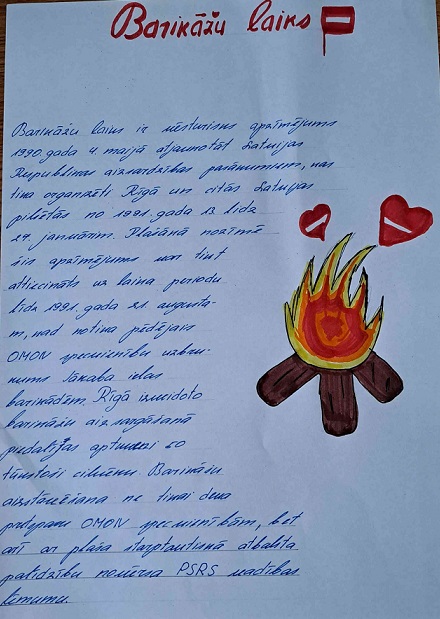 Barikāžu laiks
Barikāžu laiks ir vēsturisks apzīmējums
1990. gada 4. maijā atjaunotāt Latvijas
Republikas aizsardzības pasākumiem, kas
tika organizēti Rīgā un citās Latvijas
pilsētās no 1991. gada 13. līdz
27. janvārim. Plašānā nozīmē
šis apzīmējums var tikt
attiecināts uz laika periodu
līdz 1991. gada 21. augusta-
m, kad notika pēdējais
OMON specvienību uzbru-
kums Jēkaba ielas
barikādēm. Rīgā izveidoto
barikāžu aizsargāšanā
piedalījās aptuveni 50
tūkstoši cilvēku. Barikāžu
aizstāvēšana ne tikai deva
pretsparu OMON specvienībām, bet
arī ar plaša starptautiskā atbalsta
palīdzību nosvēra PSRS vadības
lēmumu.